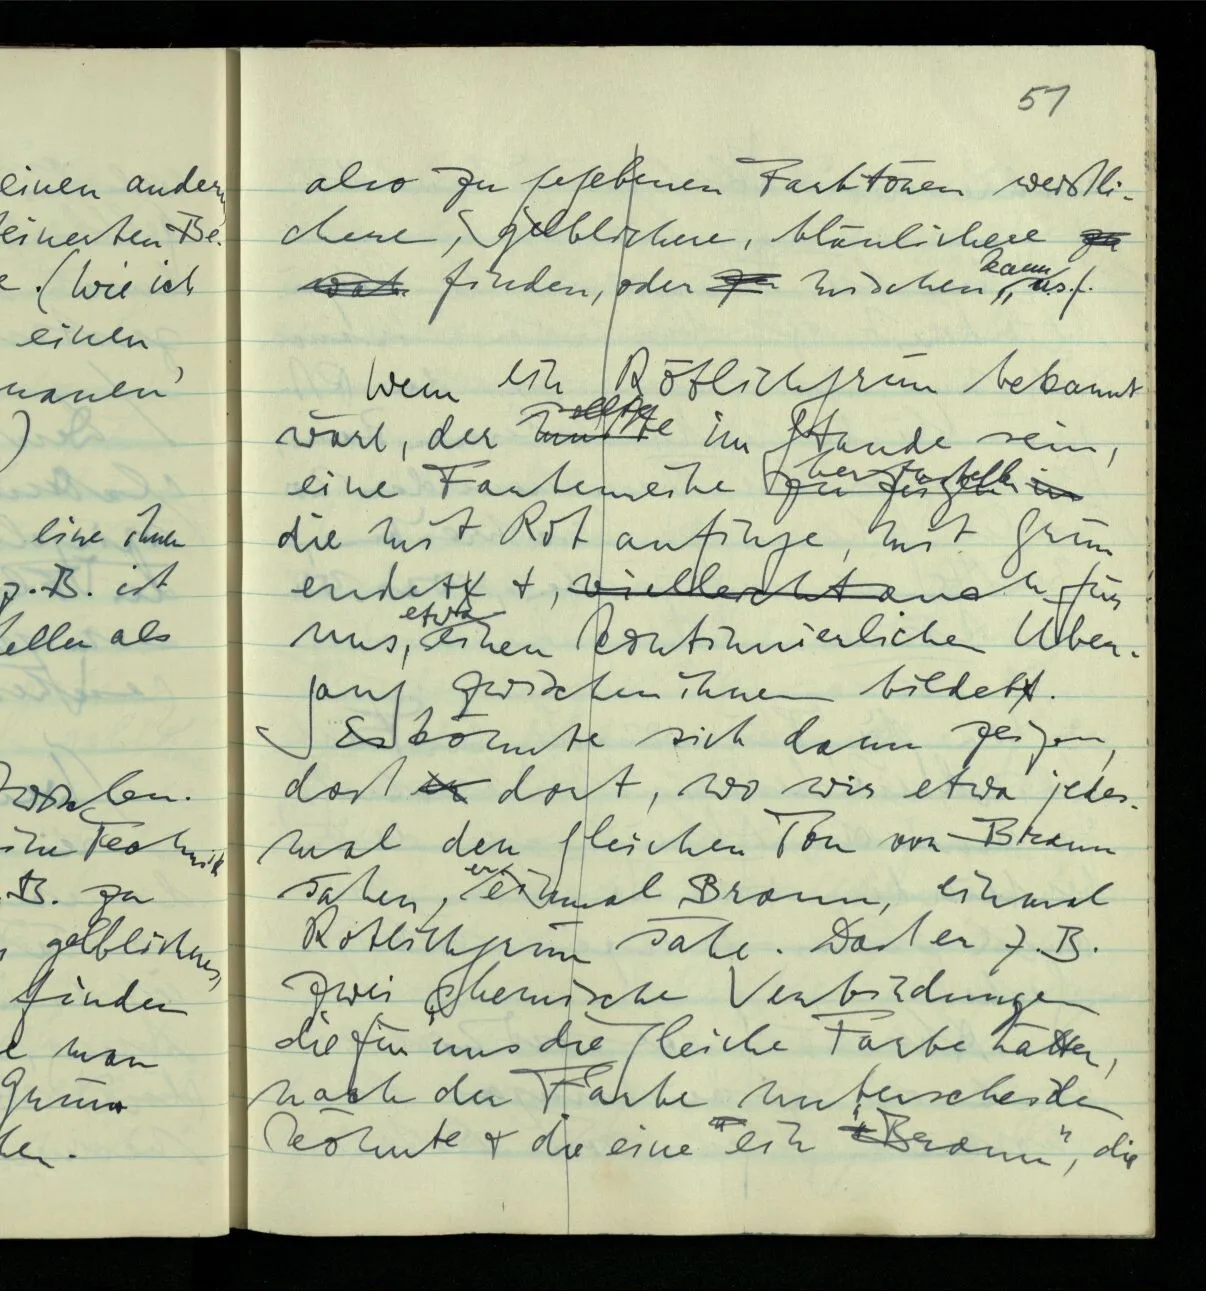 51
einen andern
also zu gegebenen Farbtönen weissli-
chere, gelblichere, bläulichere zu
finden, oder zu mischen kann, u.s.f.
e. (Wie ich
einen
Wem ein Rötlichgrün bekannt
wäre, der sollte im Stande sein,
eine Farbenreihe herzustellen
die mit Rot anfinge, mit Grün
endet & , vielleicht auch für
uns, etwa einen kontinuierlichen Über-
gang zwischen ihnen bildet.
Es könnte sich dann zeigen,
dass er dort, wo wir etwa jedes-
mal den gleichen Ton von Braun
sahen, er einmal Braun, einmal
Rötlichgrün sähe. Dass er z.B.
zwei chemische Verbindungen
die für uns die gleiche Farbe hatten,
nach der Farbe unterscheiden
könnte & die eine "ein "Braun", die
eine ihm
z.B. ist
heller als
eine Technik
z.B. zu
gelbliches,
finden
man
Grün